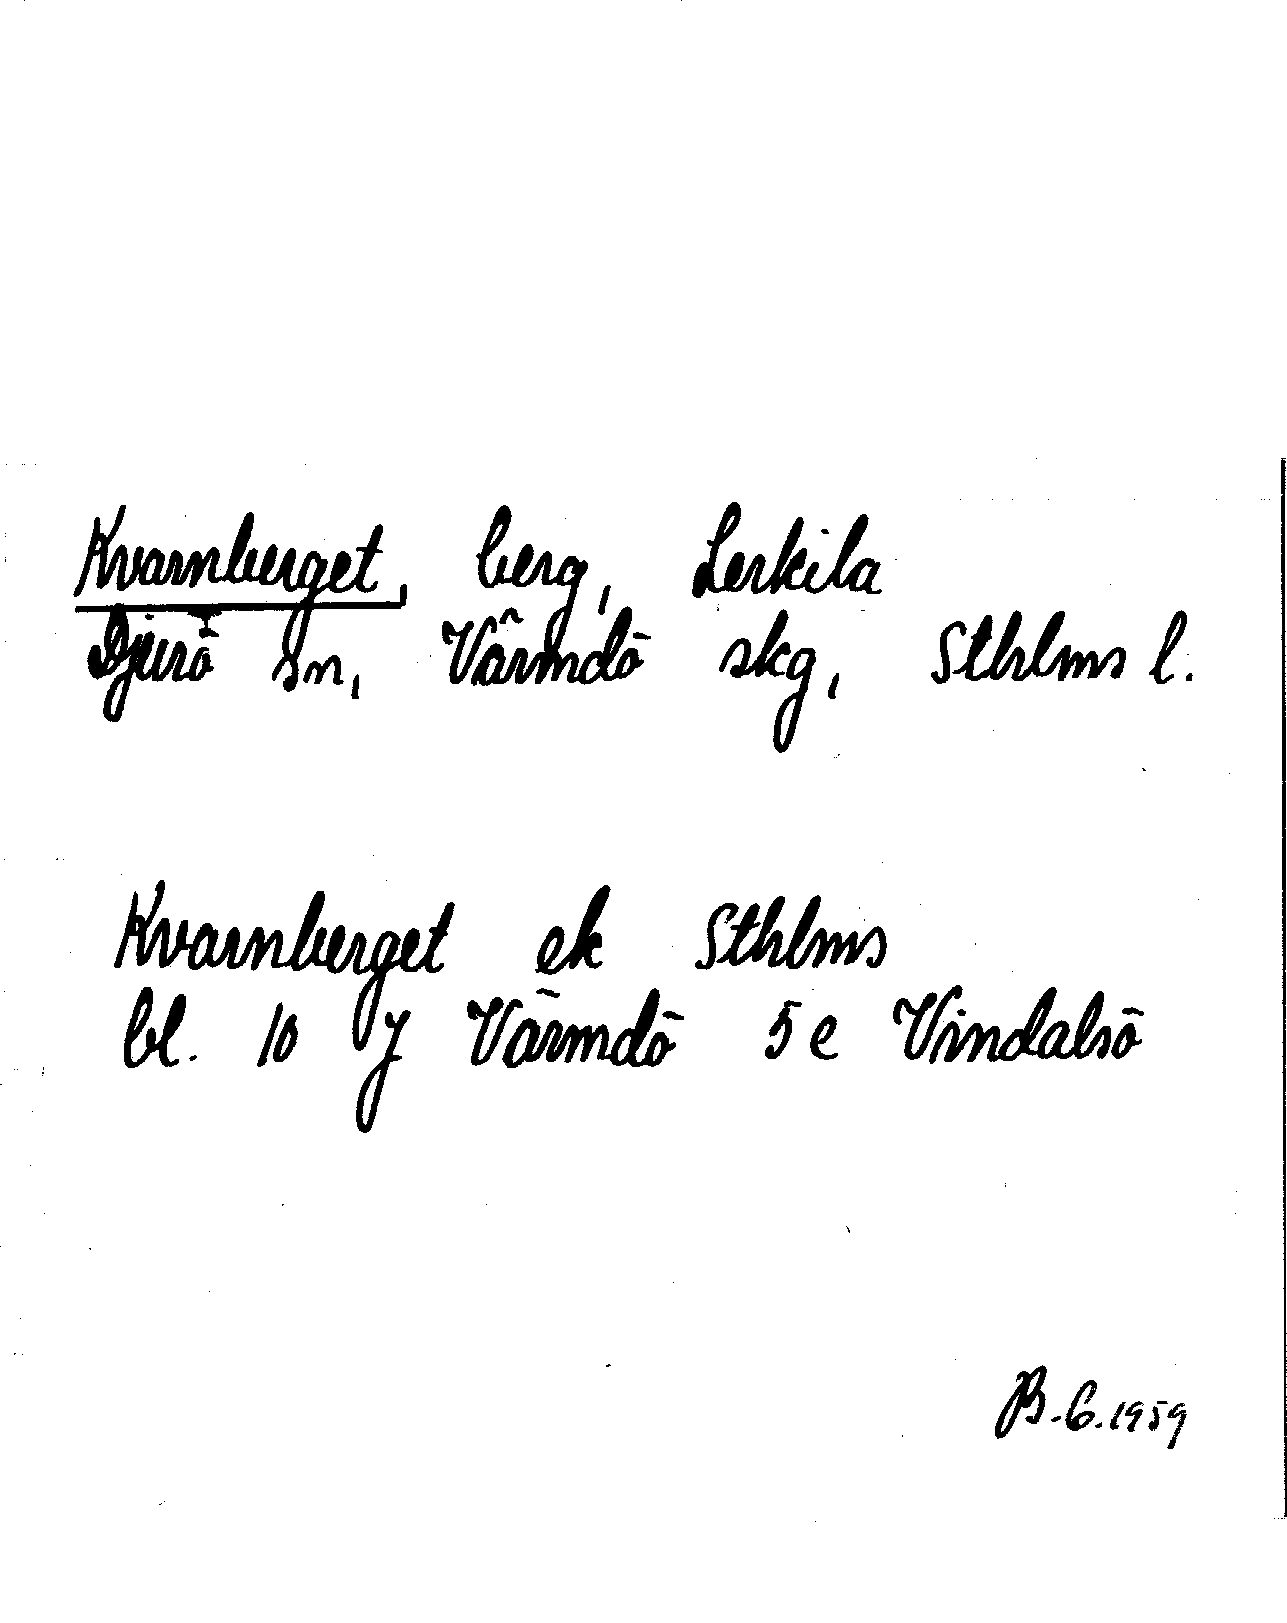 Kvarnberget, berg, Lerkila
Djurö sn, Värmdö skg, Sthlms l.
Kvarnberget ek Sthlms
bl. 10 J Värmdö 5 e Vindalsö
B.G. 1959